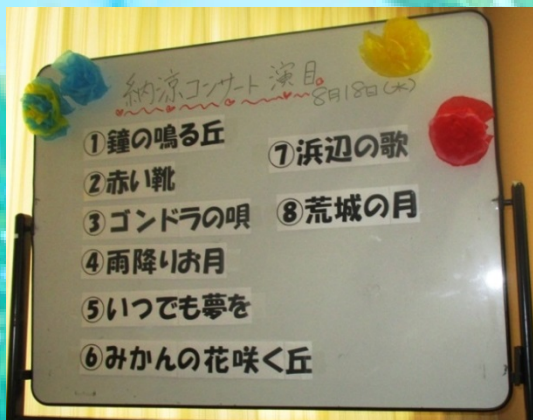 納涼コンサート演目
8月18日(水)
①鐘の鳴る丘
②赤い靴
③ゴンドラの唄
④雨降りお月
⑤いつでも夢を
⑥みかんの花咲く丘
⑦浜辺の歌
⑧荒城の月